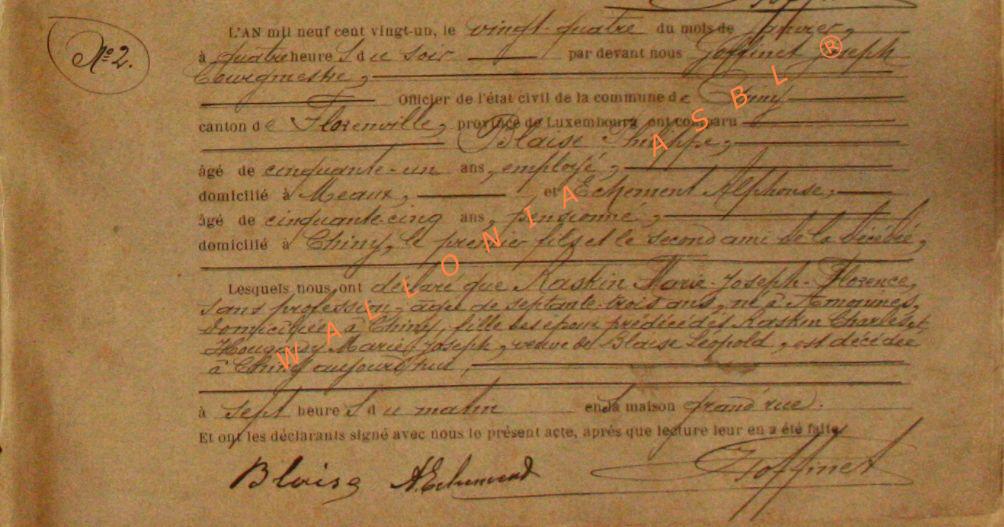 No 2.
L'AN mil neuf cent vingt-un, le vingt-quatre du mois de janvier,
à quatre heures du soir par devant nous Goffinet Joseph
Bourgmestre,
Officier de l'état civil de la commune de Chiny
canton de Florenville, province de Luxembourg ont comparu
Blaise Philippe,
âgé de cinquante-un ans, employé,
domicilié à Meaux, et Echement Alphonse,
âgé de cinquante cinq ans, pensionné,
domicilié à Chiny, le premier fils et le second ami de la décédée,
Lesquels nous ont déclaré que Raskin Marie-Joseph-Florence,
sans profession, âgée de septante-trois ans, née à
domiciliée à Chiny, fille des époux prédécédés Raskin Charles et
Marie Joseph, veuve de Blaise Léopold, est décédée
à Chiny aujourd'hui,
à sept heures du matin en la maison grand'rue.
Et ont les déclarants signé avec nous le présent acte, après que lecture leur en a été faite.
Blaise Goffinet
WALLONIA ASBL ®